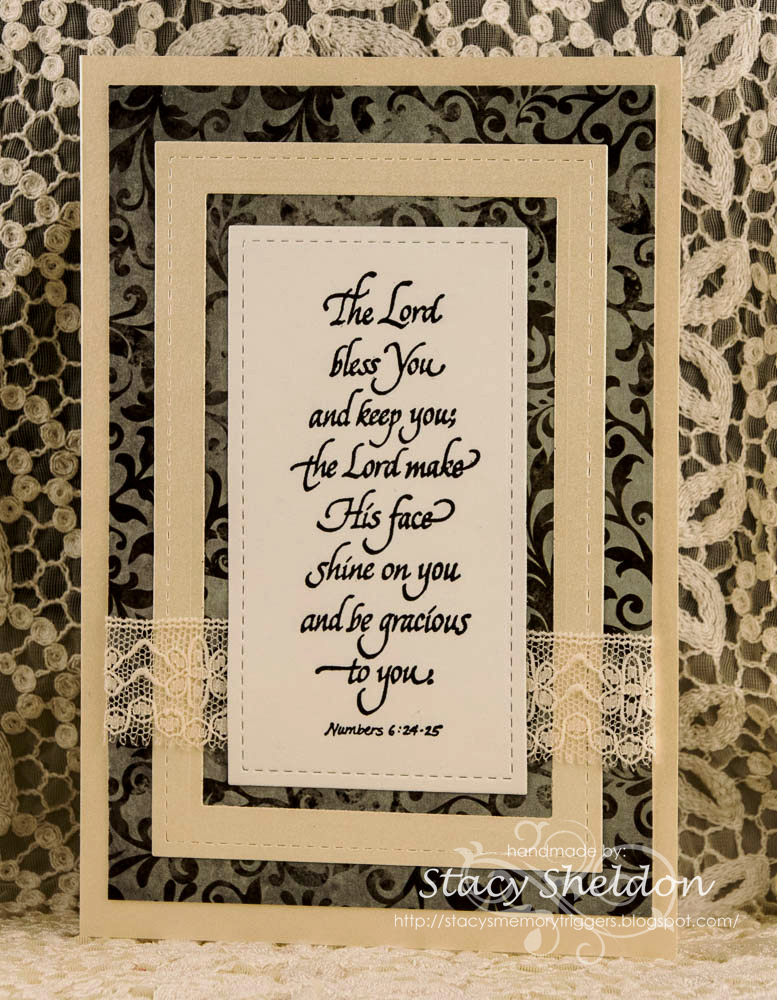 The Lord
bless You
and keep you;
the Lord make
His face
shine on you
and be gracious
to you.
Numbers 6:24-25
handmade by:
Stacy Sheldon
http://stacysmemorytriggers.blogspot.com/